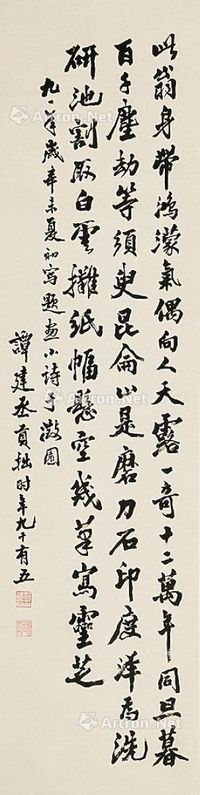 此翁身带鸿濛氣偶向人天露一奇十二萬年同旦暮
百千塵劫等須臾昆侖山是磨刀石印度洋為洗
研池割取白雲攤紙幅懸空幾筆寫靈芝
九一年歲辛未夏初寫題畫小詩于澂園
譚建丞貢拙时年九十有五